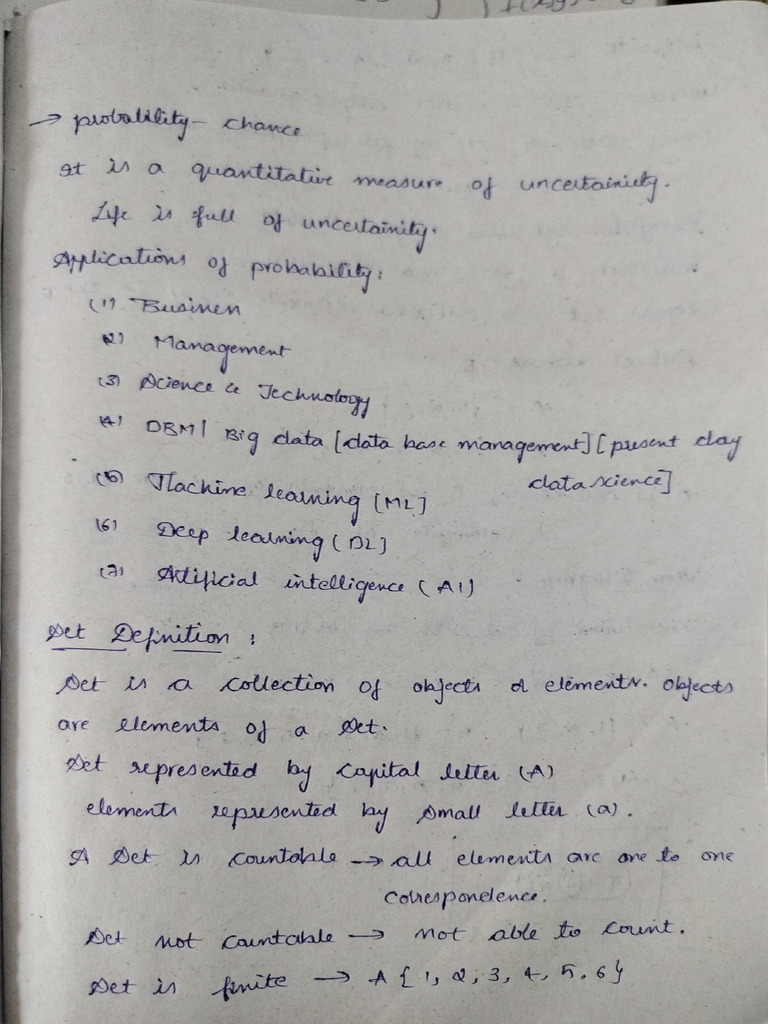 → probability - chance
It is a quantitative measure of uncertainiety.
Life is full of uncertainity.
Applications of probability:
(1) Business
(2) Management
(3) Science & Technology
(4) DBM | Big data [data base management] [present day
data science]
(5) Machine learning [ML]
(6) Deep learning (DL]
(7) Artificial intelligence (AI)
Set Definition :
Set is a collection of objects or elements. objects
are elements of a set.
Set represented by capital letter (A)
elements represented by small letter (a).
A set is countable → all elements are one to one
correspondence.
Set not countable → not able to count.
Set is finite → A { 1, 2, 3, 4, 5, 6 }